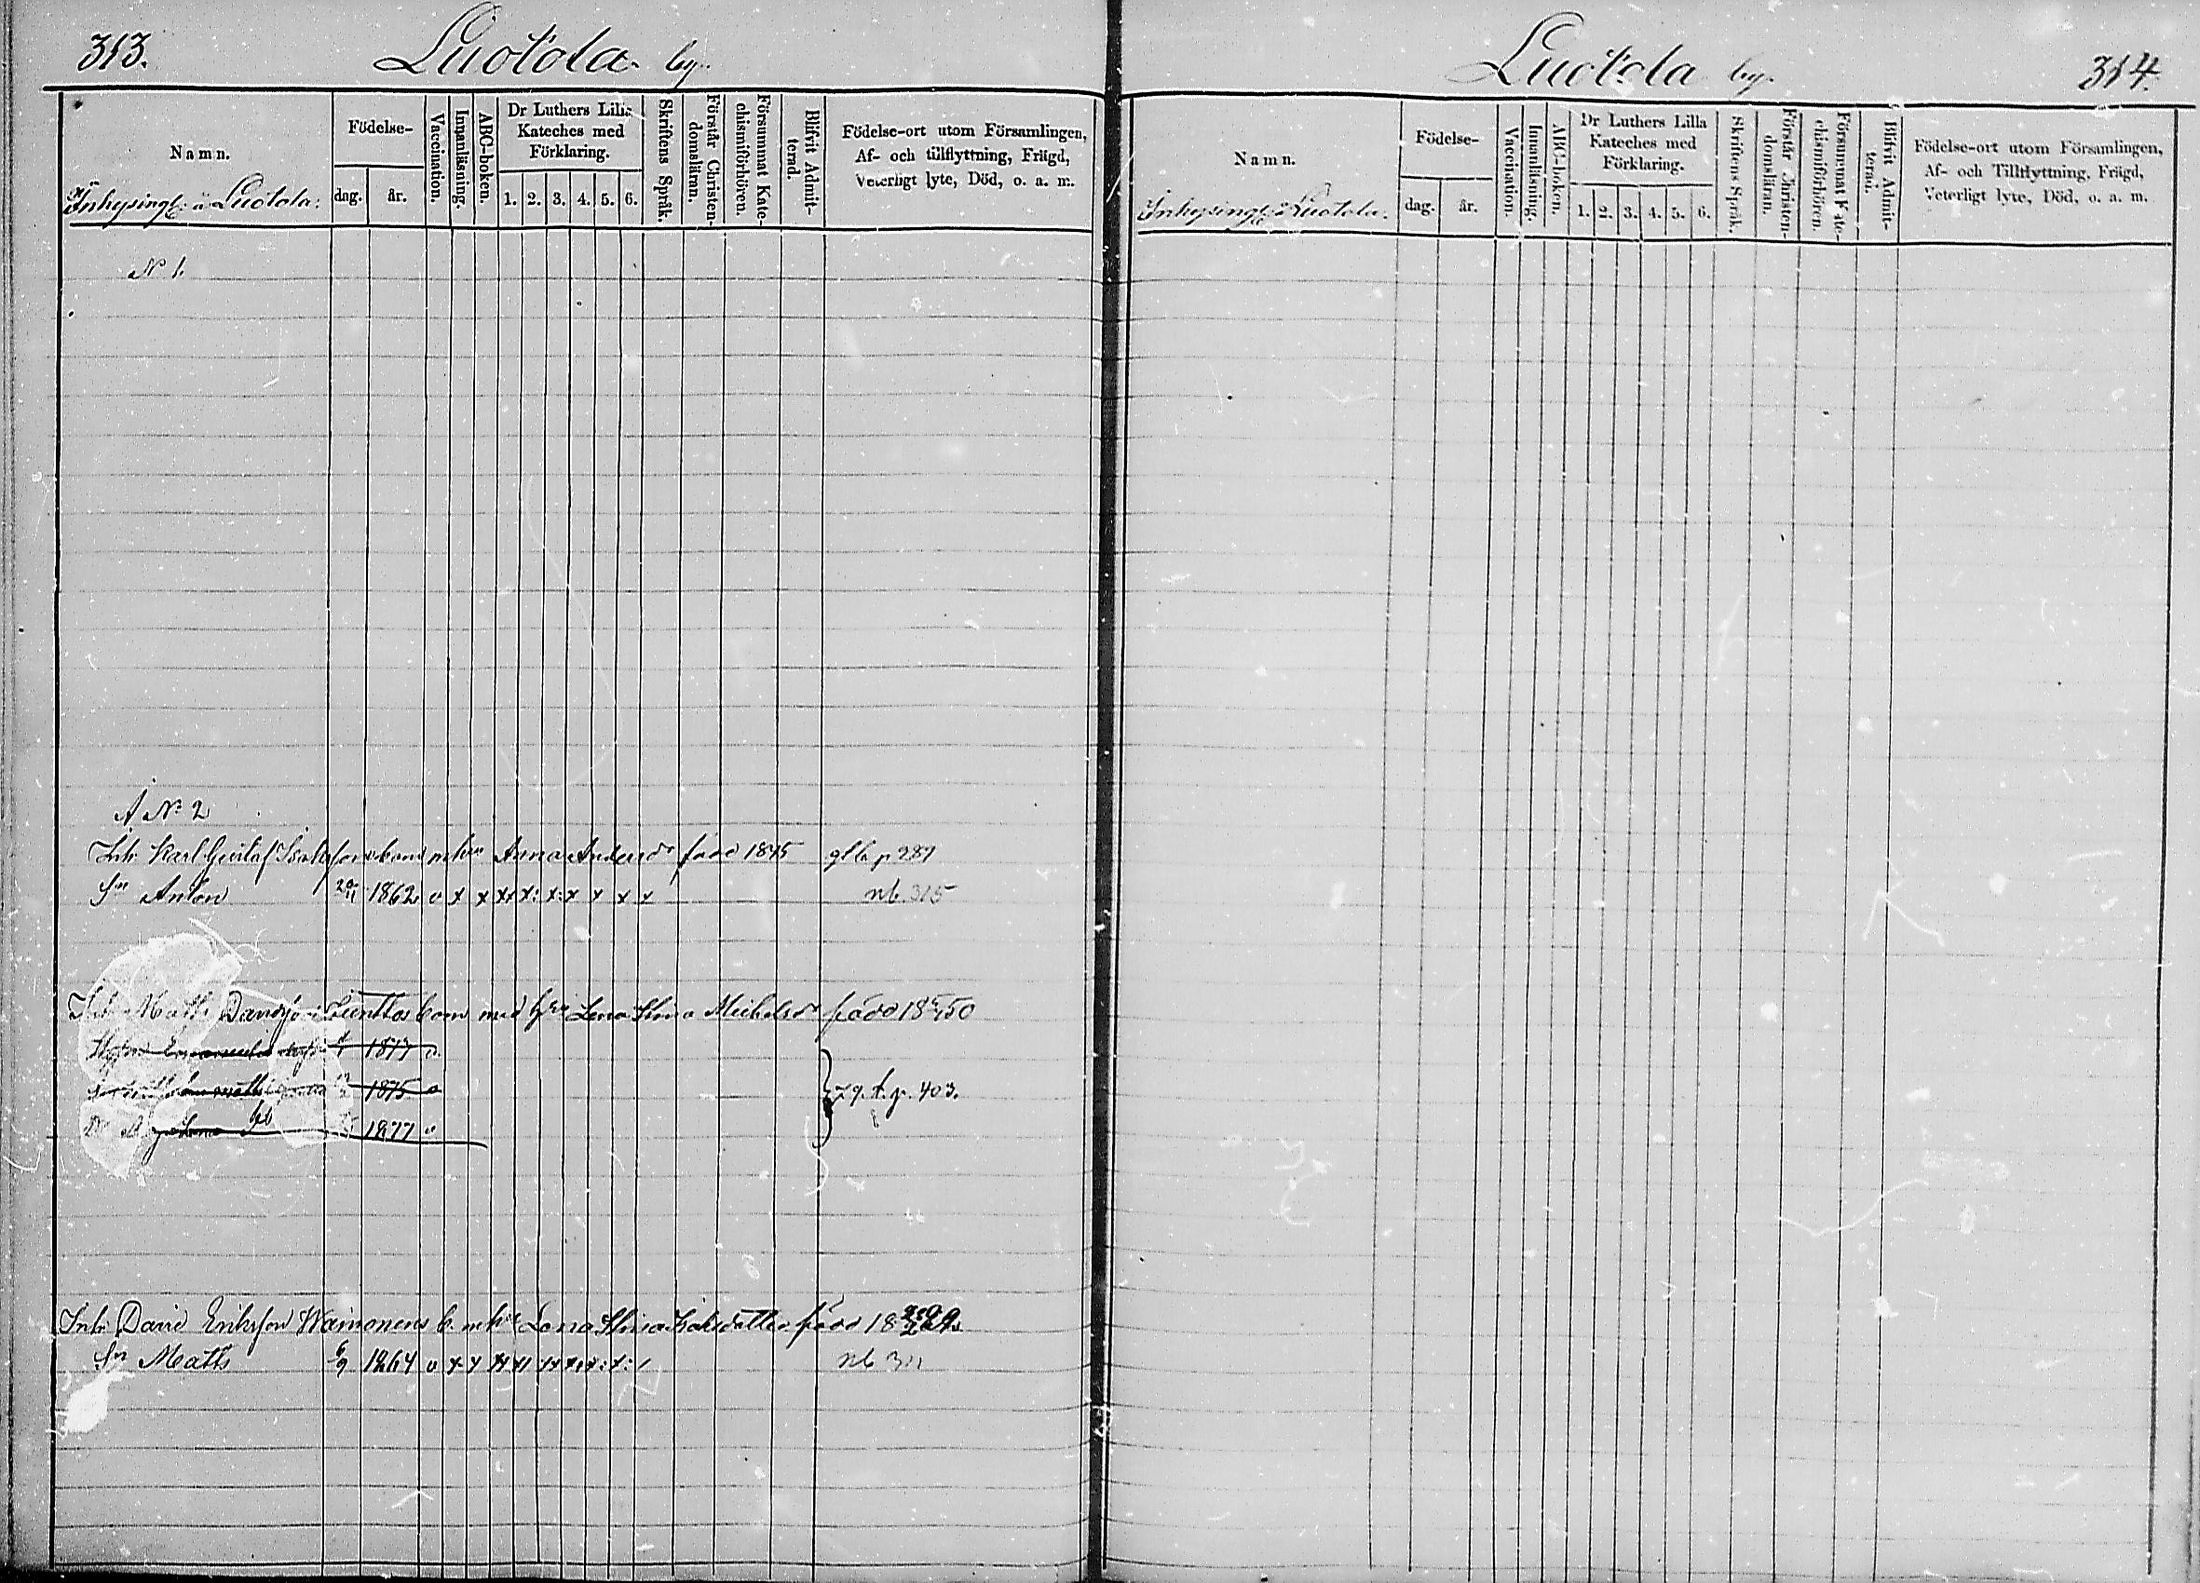 313.
Luotola by.
Namn.
Inhysingb: å Luotola:
Födelse-
dag.
år.
Vaccination.
Innanläsning.
ABC-boken.
Dr Luthers Lilla
Kateches med
Förklaring.
1. 2. 3. 4. 5. 6.
Skriftens Språk.
Förstår Christen-
domsläran.
Försummat Kate-
chismiförhören.
Blifvit Admit-
terad.
Födelse-ort utom Församlingen,
Af- och tillflyttning, Frägd,
Veterligt lyte, Död, o. a. m.
No 1.
A No 2
Inh. Karl Gustaf barn Anna född 1845 p 287
Sn Anton 1862 v x x nb. 315
Inh Maths Lunttas barn med Lena Stina Michelsdr född 1850
1877 v
1875 v
1877 v
p. 403.
Inh. David Eriksson Wainonens b. Lena Stina född
Sn Maths 6/9 1864 v x x nb
Luotola by.
314.
Namn.
Inhysingb: å Luotola.
Födelse-
dag.
år.
Vaccination.
Innanläsning.
ABC-boken.
Dr Luthers Lilla
Kateches med
Förklaring.
1. 2. 3. 4. 5. 6.
Skriftens Språk.
Förstår Christen-
domsläran.
Försummat Kate-
chismiförhören.
Blifvit Admit-
terad.
Födelse-ort utom Församlingen,
Af- och Tillflyttning, Frägd,
Veterligt lyte, Död, o. a. m.